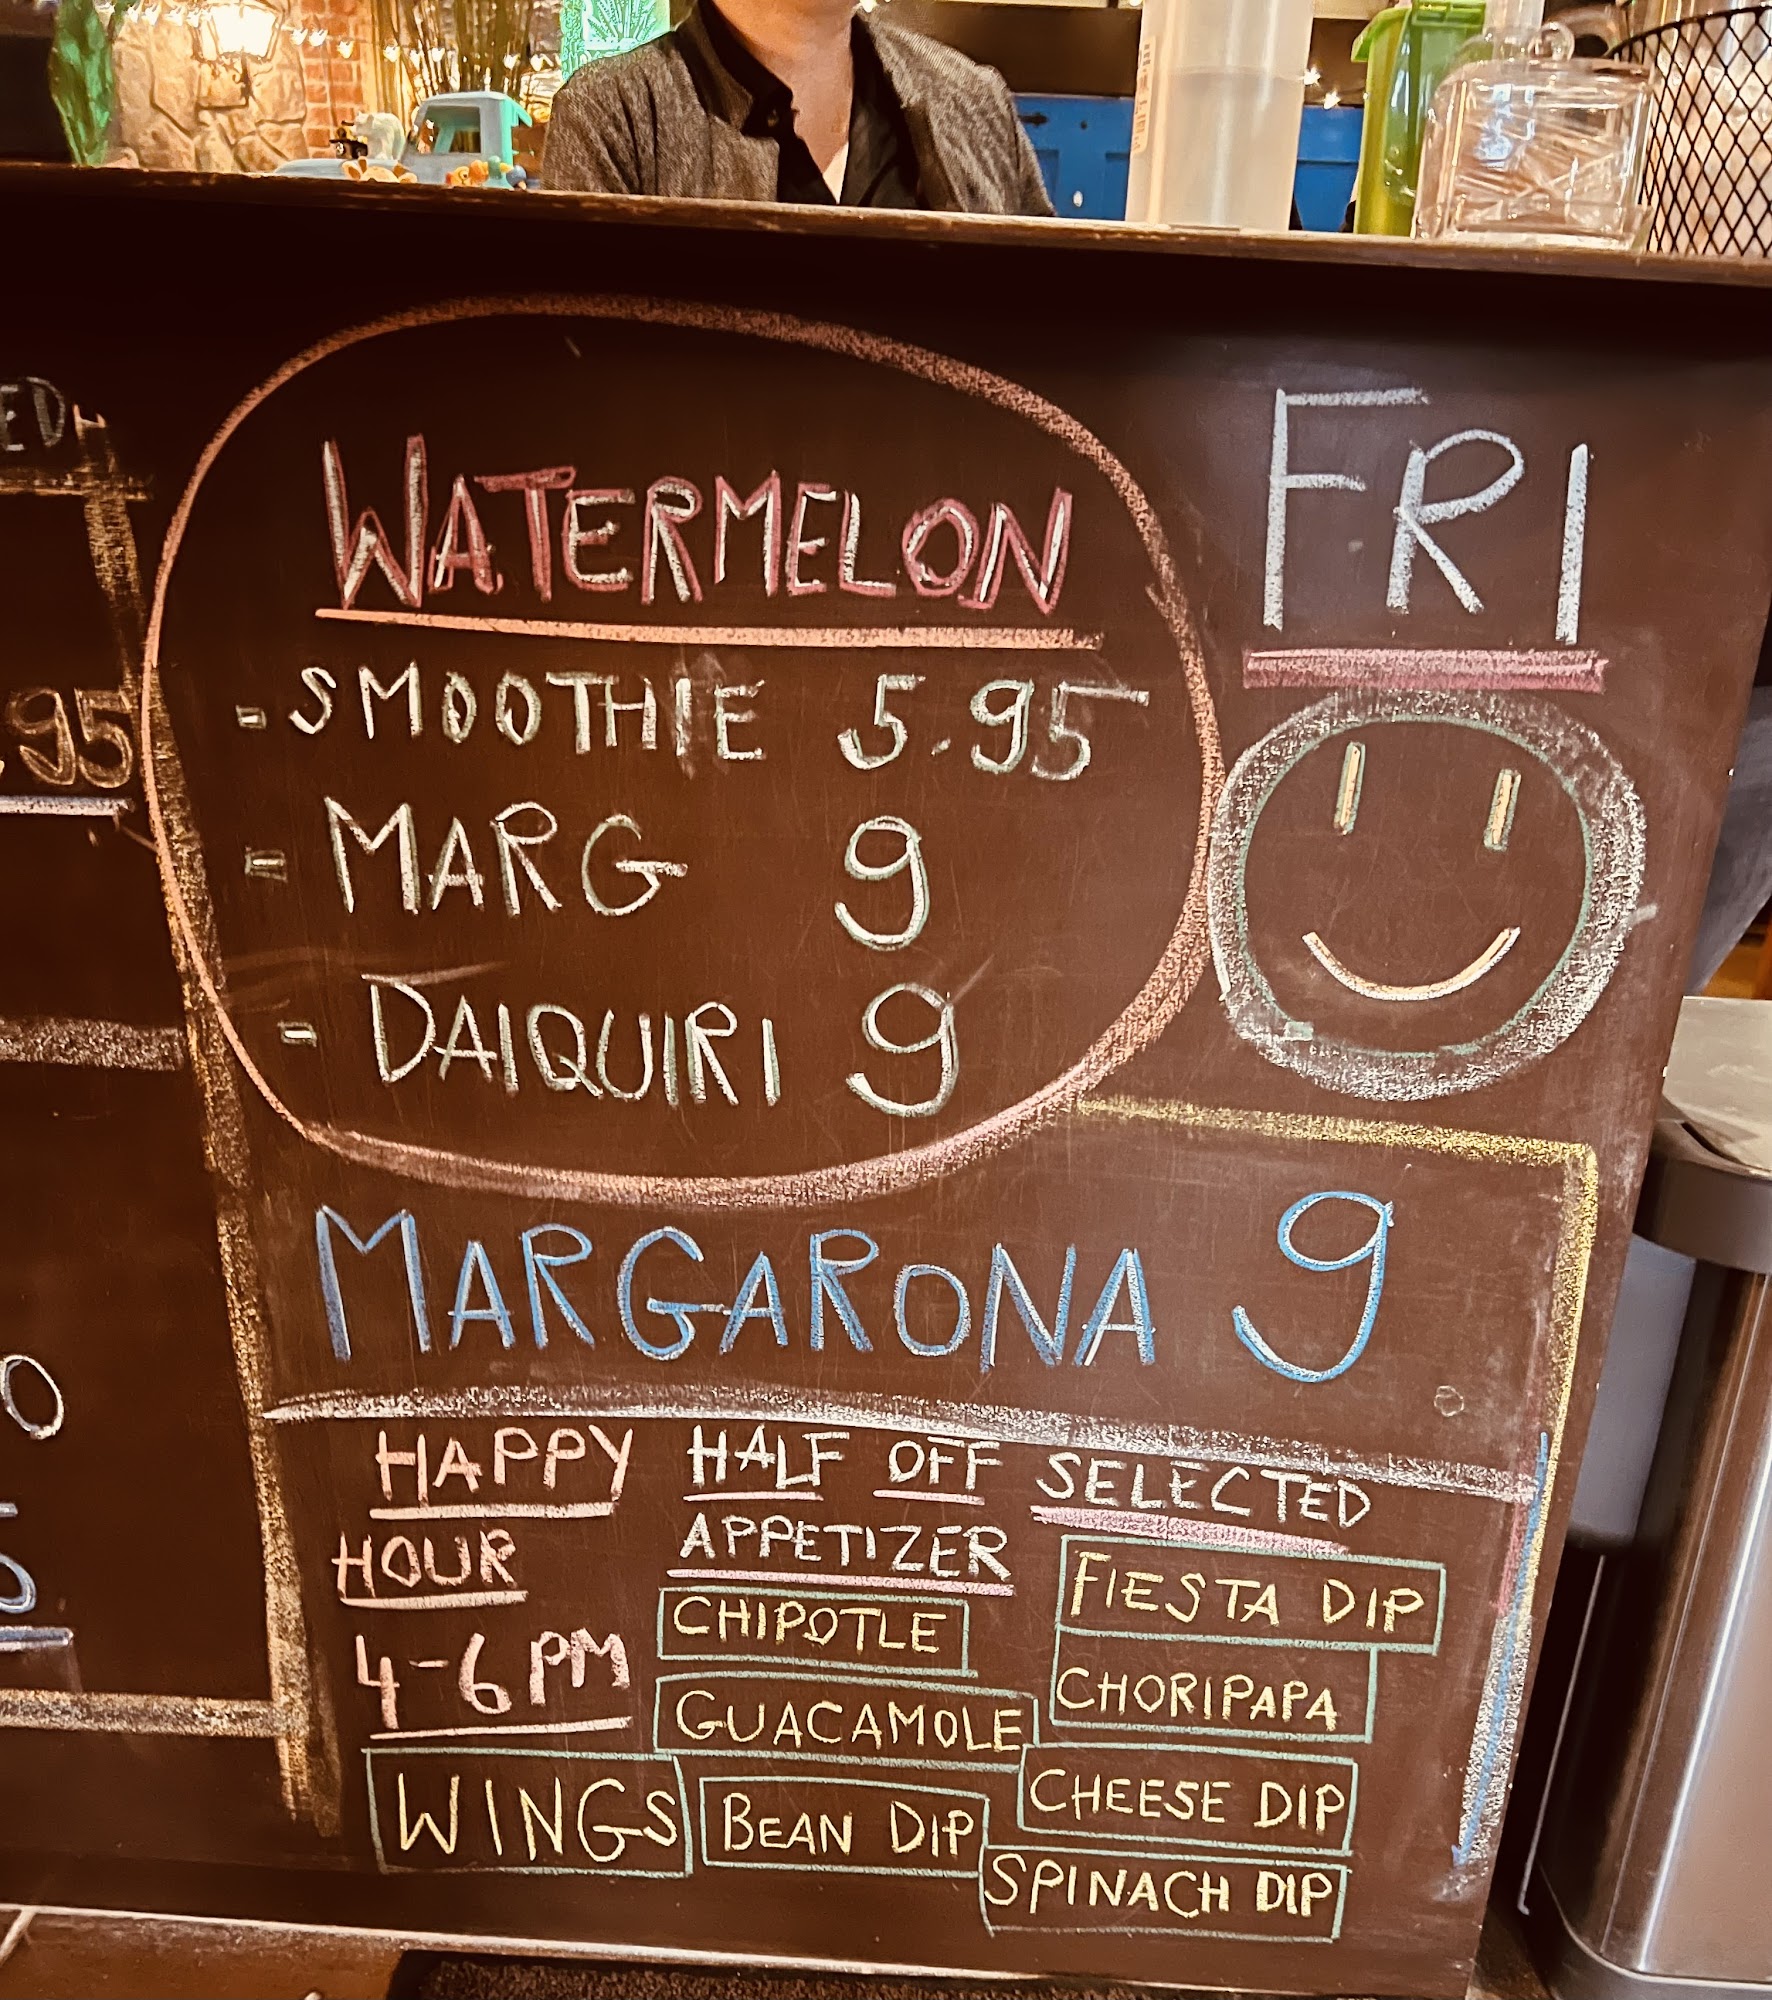 WATERMELON
- SMOOTHIE 5.95
= MARG 9
- DAIQUIRI 9
FRI
MARGARONA 9
HAPPY
HOUR
4-6 PM
HALF OFF SELECTED
APPETIZER
CHIPOTLE
FIESTA DIP
GUACAMOLE
CHORIPAPA
WINGS
BEAN DIP
CHEESE DIP
SPINACH DIP
ED
.95
0